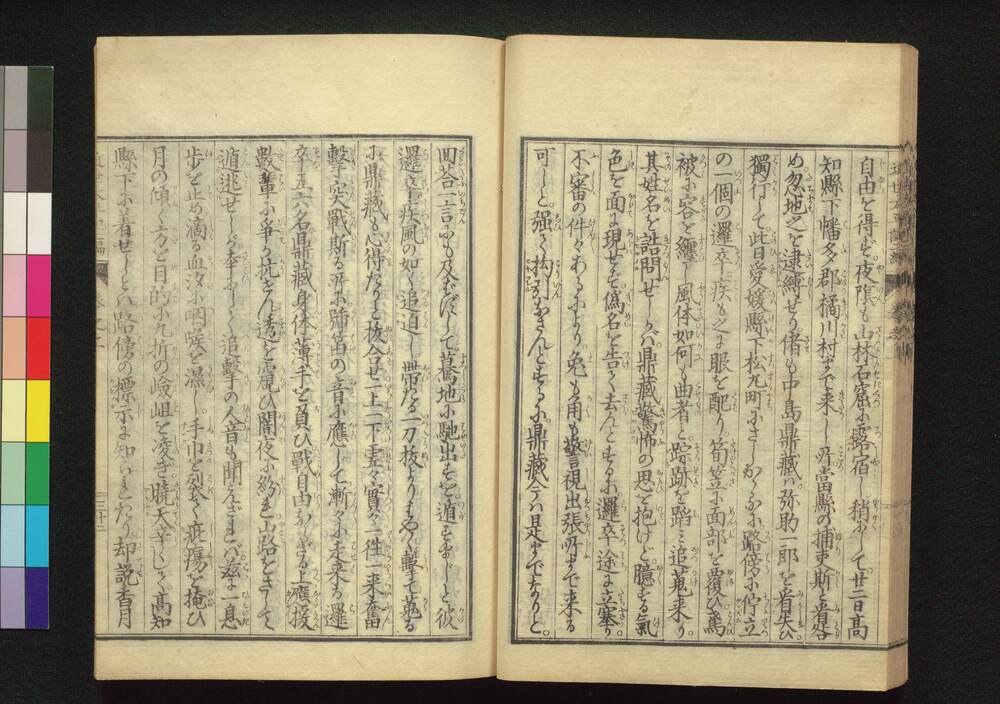 自由を得ず夜陰も山林石窟に露宿し稍にして廿二日高
知縣下幡多郡橘川村まで来し所當縣の捕吏斯と看咎
め忽地之を逮縛せり偖も中島鼎藏ハ弥助一郎を看失ひ
獨行して此日愛媛縣下松丸町にさしかゝるに路傍に佇立
の一個の邏卒疾も之に眼を配り筍笠に面部を覆ひ蔫
被に容を纏し風体如何も曲者と踪跡を蹈ミ追蒐来り
其姓名を詰問せしが鼎藏驚怖の思を抱けど臆する氣
色を面に現せず偽名を告て去んとするに邏卒途に立塞り
不審の件々あるにより兎も角も警視出張所まで来る
可しと強て拘引なさんとするに鼎藏今ハ是までなりと
回荅一言にも及ばずして驀地に馳出すを遁すまじと彼
邏卒疾風の如く追迫し帶たる一刀抜より早く撃て蒐る
に鼎藏も心得たりと抜合せ一上一下虚々實々一徃一来奮
撃突戰斯る所に號笛の音に應じて漸々に走来る邏
卒五六名鼎藏身体薄手を負ひ戰自由ならざる上應援
數輩に爭か抗さん透を窺ひ闇夜に紛れ山路をさして
遁逃せしが幸ふじて追撃の人音も聞えざれバ茲に一息
歩を止め滴る血汐に咽喉を濕し手巾を裂て疵瘍を掩ひ
月の傾く方を目的に九折の嶮岨を凌ぎ曉天辛じて高知
縣下に着せしとハ路傍の標示にて知られたり却説香月
三十二